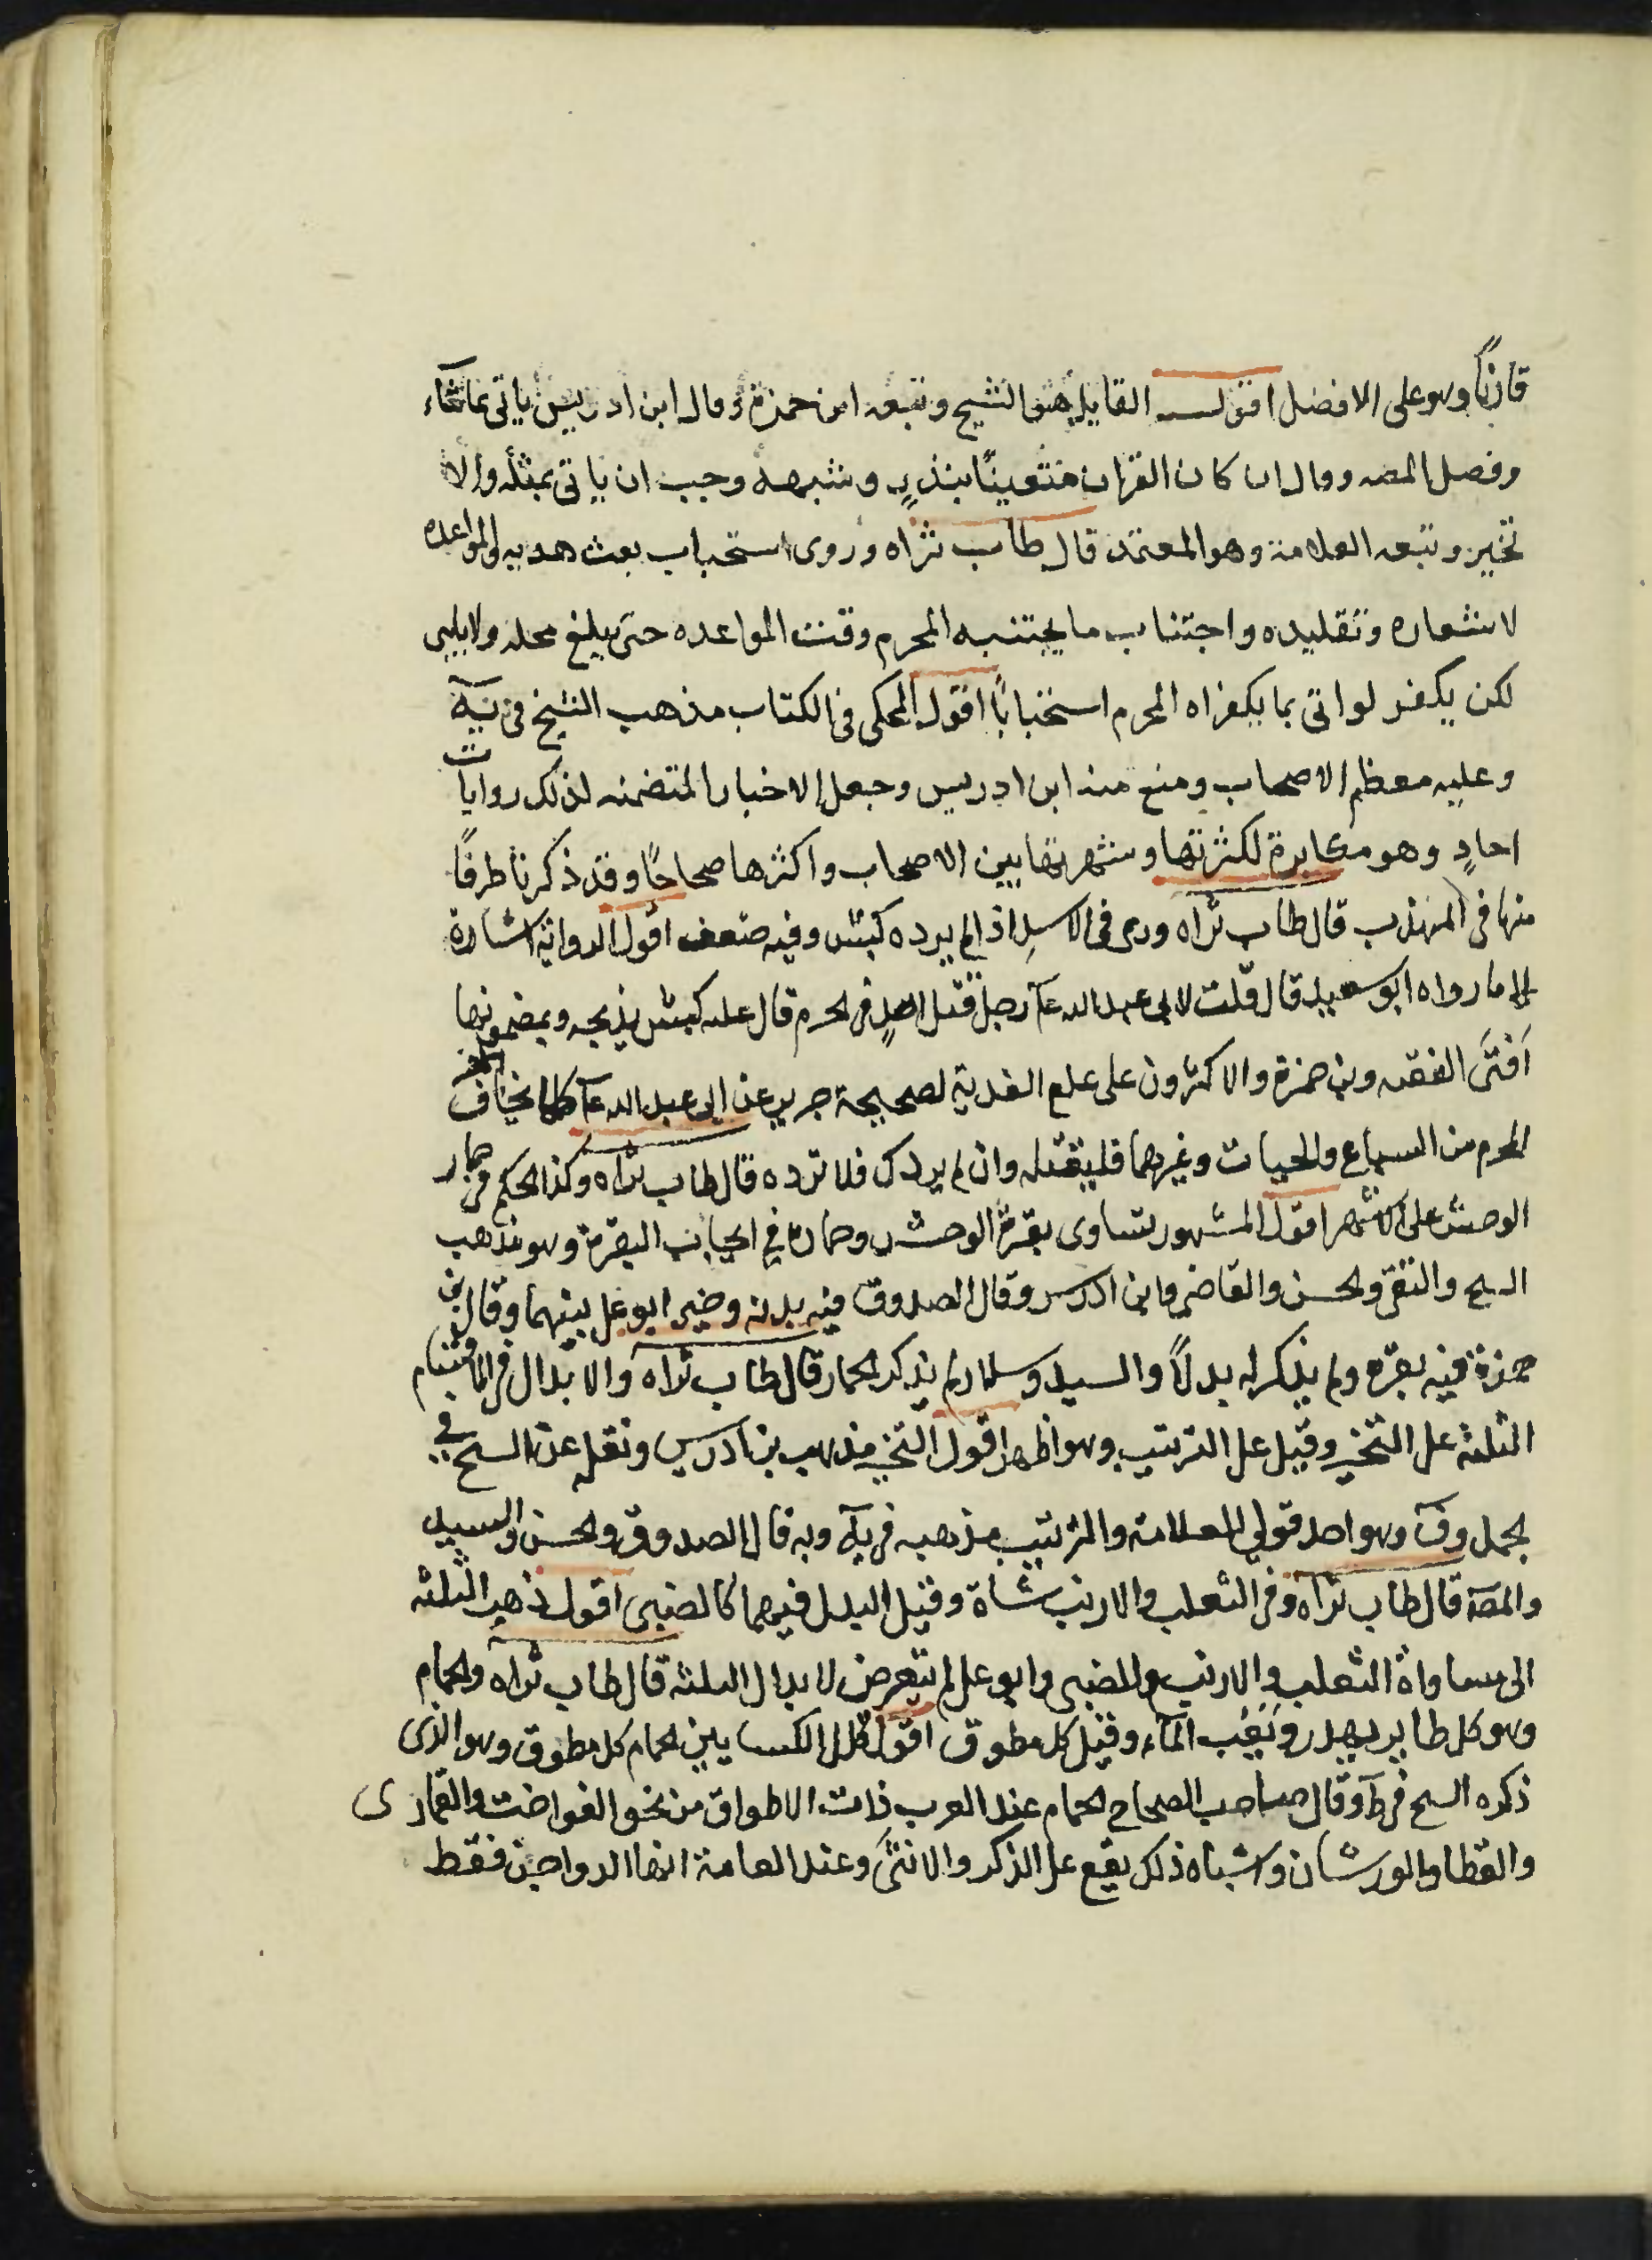 قارنًا وهو على الافضل اقول القايل هو الشيخ وتبعه ابن حمزة وقال ابن ادريس ياتى بما شاء
وفصل المصه وقال ان كان القران متعينًا بنذرٍ وشبهه وجب ان ياتى بمثله والا
تخير وتبعه العلامة وهو المعتمد قال طاب ثراه وروى استحباب بعث هديه والمواعده
لاشعاره وتقليده واجتناب ما يجتنبه المحرم وقت المواعده حتى يبلغ محله ولا يلبى
لكن يكفر لو اتى بما يكفر له المحرم استحبابًا اقول المحكى فى الكتاب مذهب الشيخ فى يه
وعليه معظم الاصحاب ومنع منه ابن ادريس وجعل الاخبار المتضمنه لذلك روايات
احادٍ وهو مكابرة لكثرتها وشهرتها بين الاصحاب واكثرها صحاحًا وقد ذكرنا طرفًا
منها فى المهذب قال طاب ثراه وروى فى الاسد اذا لم يرده كبش وفيه ضعف اقول الرواية اشارة
الى ما رواه ابو سعيد قال قلت لابى عبد الله ع رجل قتل اسدٍ فى الحرم قال عليه كبش يذبحه وبمضمونها
افتى الفقيه وبن حمزة والاكثرون على عدم الفدية لصحيحة حريز عن ابى عبد الله ع كلما يخاف
المحرم من السباع والحيات وغيرهما فليقتله وان لم يردك فلا ترده قال طاب ثراه وكذا الحكم فى حمار
الوحش على الاشهر اقول المشهور تساوى بقرة الوحش وحماره فى ايجاب البقرة وهو مذهب
الشيخ والتقى والحسن والقاضى وابن ادريس وقال الصدوق فيه بدنه وخير ابو على بينهما وقال بن
حمزة فيه بقره ولم يذكر له بدلًا والسيد وسلار لم يذكر الحمار قال طاب ثراه والابدال فى الاقسام
الثلثه على التخير وقيل على الترتيب وهو اظهر اقول التخير مذهب بن ادريس ونقله عن الشيخ فى
الجمل وف وهو احد قولى العلامة والترتيب مذهبه فى يه وبه قال الصدوق والحسن والسيد
والمصه قال طاب ثراه وفى الثعلب والارنب شاة وقيل البدل فيهما كالضبى اقول ذهب الثلثه
الى مساواة الثعلب والارنب والضبى وابو على لم يتعرض لابدال الثلثه قال طاب ثراه والحمام
وهو كل طاير يهدر ويعب الماء وقيل كل مطوق اقول قال الكسايى الحمام كل مطوق وهو الذى
ذكره الشيخ فى ط وقال صاحب الصحاح الحمام عند العرب ذات الاطواق من نحو الفواخت والقمارى
والقطا والورشان واشباه ذلك يقع على الذكر والانثى وعند العامة انها الدواجن فقط